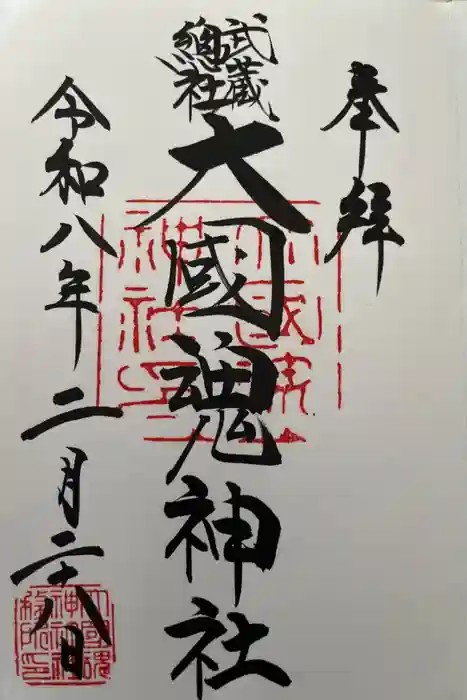 奉拜
武蔵
總社
大國魂神社
令和八年二月二十八日